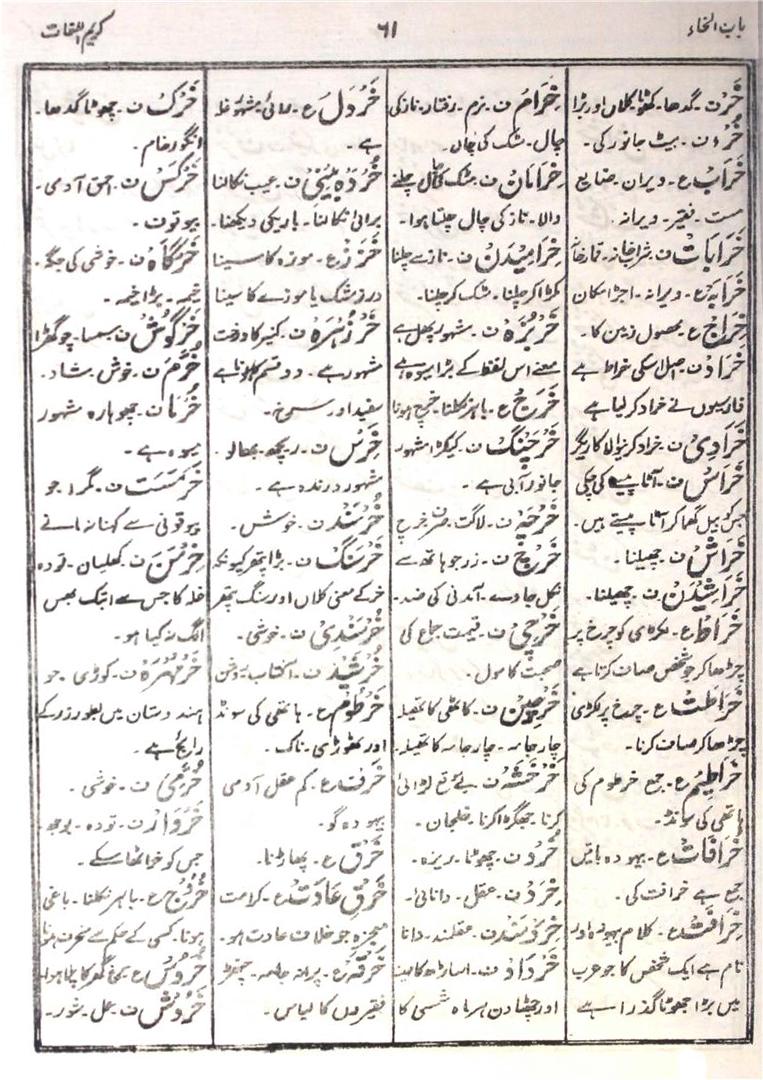 باب الخاء
۶۱
کریم اللغات
خَر ف۔ گدھا۔ کھوٹا کلاں اور بڑا
خُرْء ف۔ بیٹ جانور کی۔
خَرَاب ع۔ ویران۔ ضایع
مست۔ فقیر۔ ویرانہ۔
خَرَابَات ف۔ شرابخانہ۔ قمارخانہ
خَرَابَہ ع۔ ویرانہ۔ اجڑا مکان
خِرَاج ع۔ محصول زمین کا۔
خَرَاد ف۔ اصل اسکی خراط ہے
فارسیوں نے خراد کر لیا ہے
خَرَادِی ف۔ خراد کرنیوالا کاریگر
خَرَاس ف۔ آٹا پیسنے کی چکی
جس کو بیل گھما کر آٹا پیستے ہیں۔
خَرَاش ف۔ چھیلنا۔
خَرَاشِیْدَن ف۔ چھیلنا۔
خَرَاط ع۔ لکڑی کو چرخ پر
چڑھا کر جو شخص صاف کرتا ہے
خَرَاطَت ع۔ چرخ پر لکڑی
چڑھا کر صاف کرنا۔
خَرَاطِیْم ع۔ جمع خرطوم کی
ہاتھی کی سونڈ۔
خُرَافَات ع۔ بیہودہ باتیں
جمع ہے خرافت کی۔
خُرَافَت ع۔ کلام بیہودہ اور
نام ہے ایک شخص کا جو عرب
میں بڑا جھوٹا گذرا ہے
خِرَام ف۔ نرم۔ رفتار۔ ناز کی
چال۔ مٹک کی چال
خِرَامَان ف۔ مٹک کی چال چلنے
والا۔ ناز کی چال چلتا ہوا۔
خِرَامِیْدَن ف۔ ناز سے چلنا
اکڑ کر چلنا۔ مٹک کر چلنا۔
خَرْبُزَہ ف۔ مشہور پھل ہے
معنے اس لفظ کے بڑا میوہ ہے
خَرَج ع۔ باہر نکلنا۔ خرچ ہونا
خَرْچَنْگ ف۔ کیکڑا مشہور
جانور آبی ہے۔
خَرْچَہ ف۔ لاگت۔ صرف۔ خرچ
خَرْچ ف۔ زر جو ہاتھ سے
نکل جاوے۔ آمدنی کی ضد۔
خَرْچِی ف۔ قیمت جماع کی
صحبت کا مول۔
خُرْجِیْن ف۔ کاٹھی کا تھیلا
چارجامہ۔ چارجامہ کا تھیلا۔
خَرْخَشَہ ف۔ بے موقع لڑائی
کرنا۔ جھگڑا کرنا۔ خلجان۔
خُرْد ف۔ چھوٹا۔ ریزہ۔
خِرَد ف۔ عقل۔ دانائی۔
خِرَدْمَنْد ف۔ عقلمند۔ دانا
خُرْدَاد ف۔ اساڑھ کا مہینا
اور چھٹا دن ہر ماہ شمسی کا
خَرْدَل ع۔ رائی۔ مشہور غلہ
ہے۔
خُرْدَہ بِیْنِی ف۔ عیب نکالنا
برائی نکالنا۔ باریکی دیکھنا۔
خَرْز ع۔ موزہ کا سینا
درز مشک یا موزے کا سینا
خَرْزَہْرَہ ف۔ کنیر کا درخت
مشہور ہے۔ دو قسم کا ہوتا ہے
سفید اور سرخ۔
خِرْس ف۔ ریچھ۔ بھالو۔
مشہور درندہ ہے۔
خُرْسَنْد ف۔ خوش۔
خَرْسَنْگ ف۔ بڑا پتھر کیونکہ
خر کے معنی کلاں اور سنگ پتھر
خُرْسَنْدِی ف۔ خوشی۔
خُرْشِیْد ف۔ آفتاب روشن
خُرْطُوم ع۔ ہاتھی کی سونڈ
اور تھوڑی۔ ناک۔
خَرِف ع۔ کم عقل آدمی
بیہودہ گو۔
خَرْق ع۔ پھاڑنا۔
خَرْقِ عَادَت ع۔ کرامت
معجزہ جو خلاف عادت ہو۔
خِرْقَہ ع۔ پرانا جامہ۔ چیتھڑا
فقیروں کا لباس۔
خَرَک ف۔ چھوٹا گدھا۔
انگور خام۔
خَرَکَس ف۔ احمق آدمی۔
بیوقوف۔
خَرْگَاہ ف۔ خوشی کی جگہ۔
خیمہ۔ بڑا خیمہ۔
خَرْگُوش ف۔ سسا۔ چوگھڑا
خُرَّم ف۔ خوش۔ شاد۔
خُرْمَا ف۔ چھوہارہ مشہور
میوہ ہے۔
خَرْمَسْت ف۔ مگرا۔ جو
بیوقوفی سے کہنا نہ مانے
خِرْمَن ف۔ کھلیان۔ تودہ
غلہ کا جس سے ابتک بھس
الگ نہ کیا ہو۔
خَرْمُہْرَہ ف۔ کوڑی۔ جو
ہندوستان میں بطور زر کے
رائج ہے۔
خُرَّمِی ف۔ خوشی۔
خَرْوَار ف۔ تودہ۔ بوجھ۔
جس کو خر اٹھا سکے۔
خُرُوج ع۔ باہر نکلنا۔ باغی
ہونا۔ کسی کے حکم سے منحرف ہونا
خُرُوس ع۔ مرغ گھر کا پلا ہوا۔
خُرُوش ف۔ غل۔ شور۔